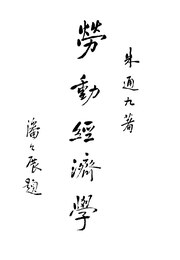 朱通九著
勞動經濟學
潘公展題